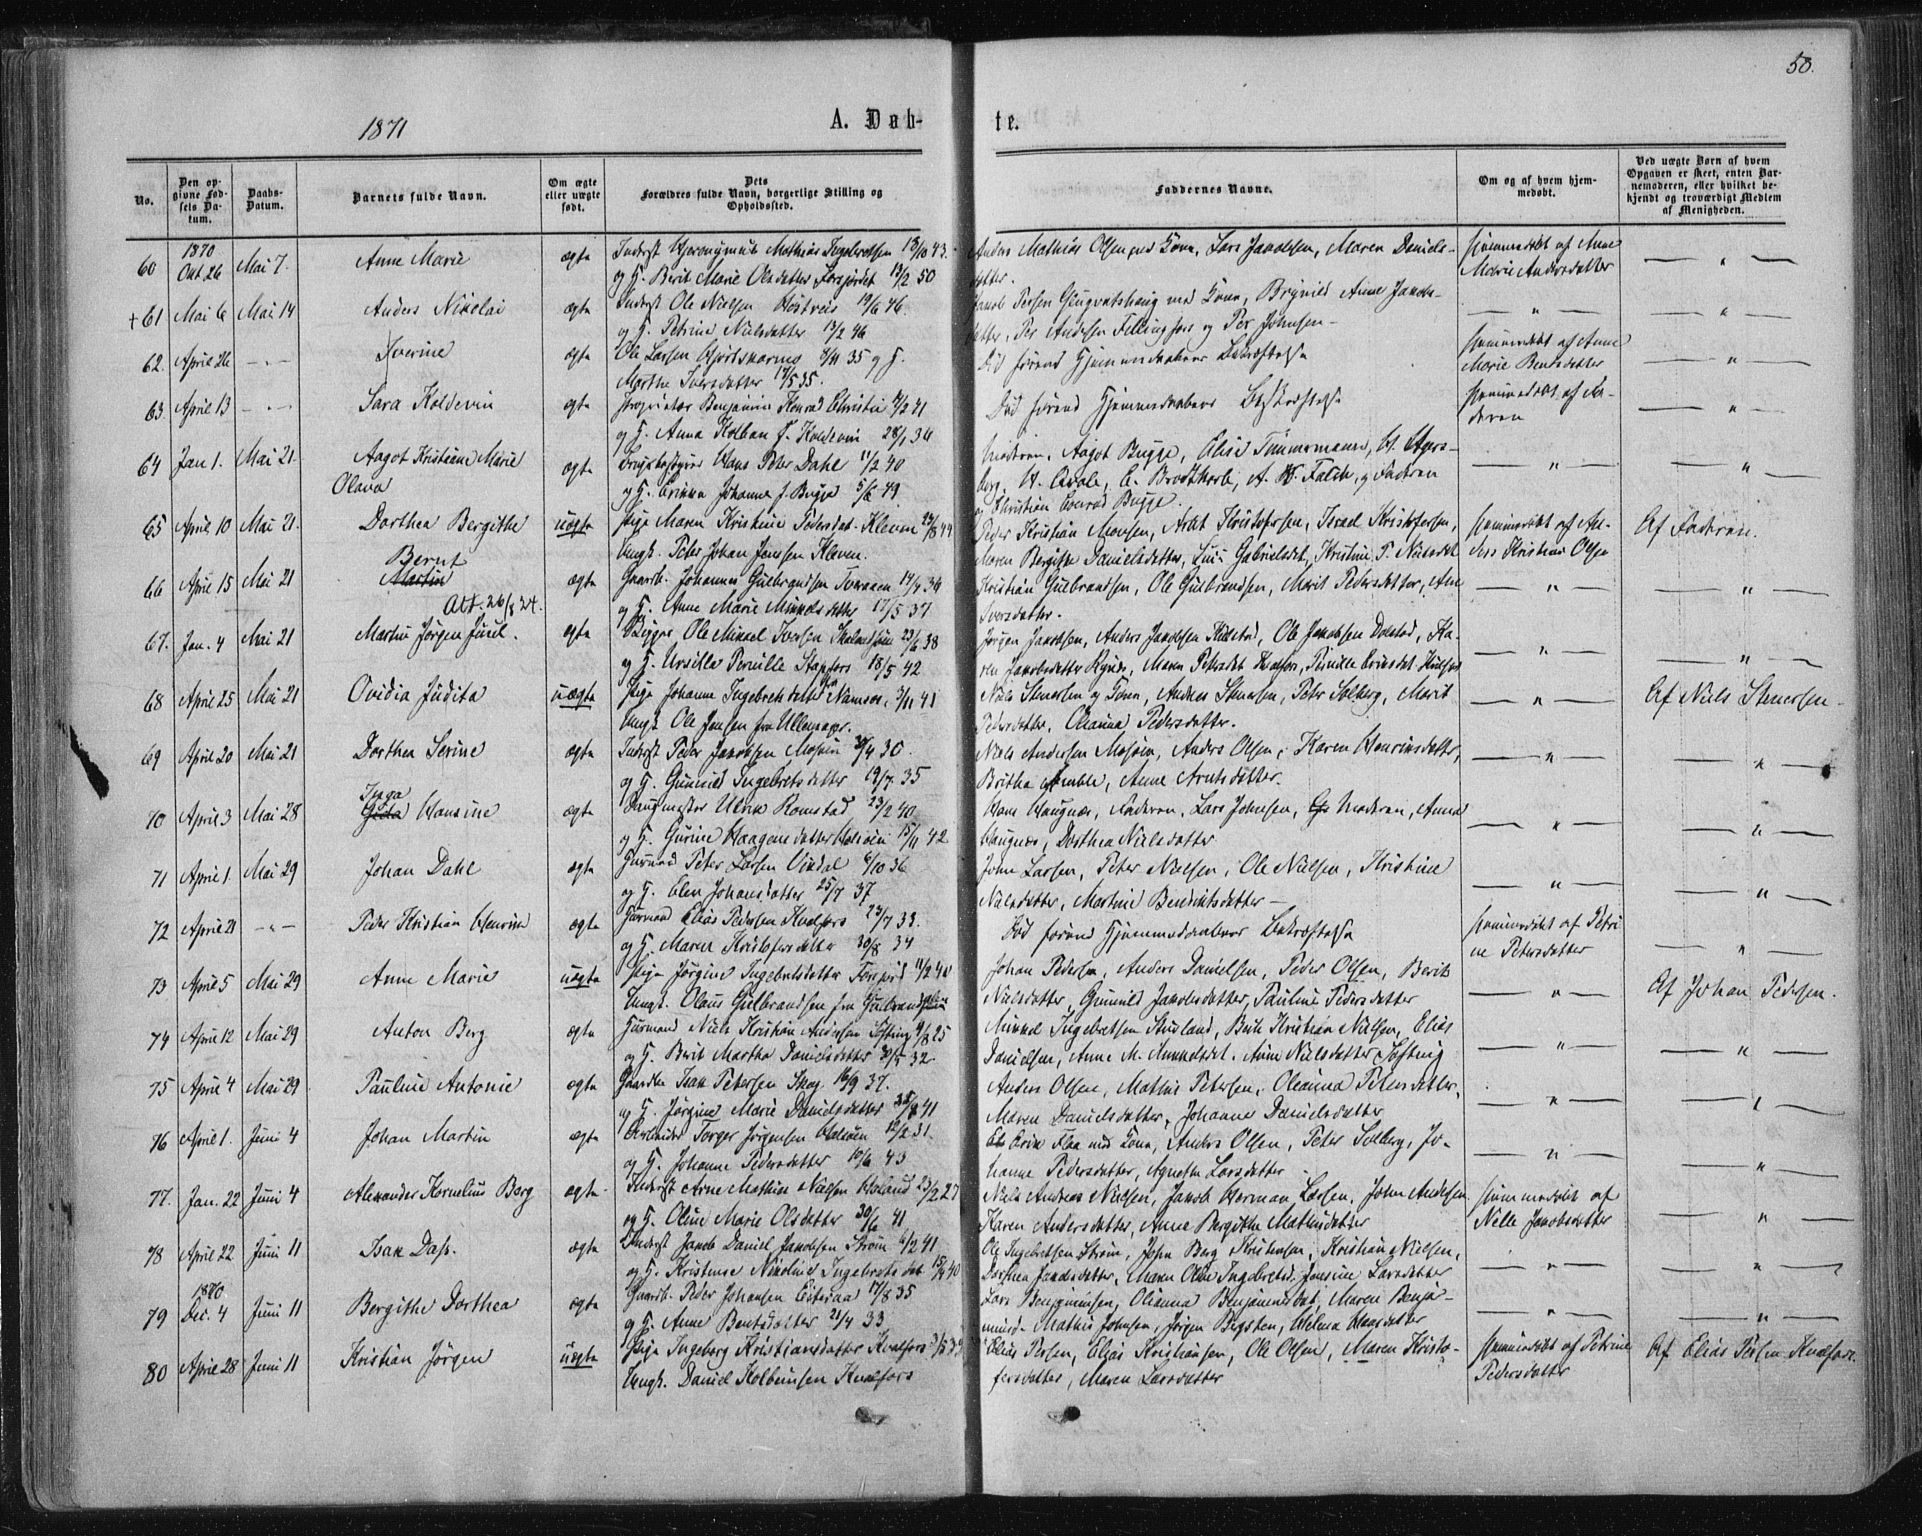 50.
1871
A. Døb-
te.
No.
Den op-
givne Fød-
sels Da-
tum.
Daabs-
Datum.
Barnets fulde Navn.
Om ægte
eller uægte
født.
Dets
Forældres fulde Navn, borgerlige Stilling og
Opholdssted.
Faddernes Navne.
Om og af hvem hjem-
medøbt.
Ved uægte Børn af hvem
Opgaven er skeet, enten Bar-
nemoderen, eller hvilket be-
kjendt og troværdigt Medlem
af Menigheden.
60 1870 Okt. 26 Mai 7. Anne Marie ægte Inderst Hjeronymus Mathias 13/10 43.
og H. Berit Marie Olsdatter Forsjordet 12/2 50
Anders Mathias Olsen med Kone, Lars Jakobsen, Maren Daniels-
datter.
Hjemmedøbt af Anne
Marie Andersdatter — " —
+ 61 Mai 6 Mai 14 Anders Nikolai ægte Inderst Ole Nielsen 19/6 46.
og H. Petrine Nielsdatter 13/2 46
Jakob Persen med Kone, Brynild Anne Jakobs-
datter, Per Andersen Fellingfors og Per Johnsen —
— " — — " —
62. April 26 — " — Iverine ægte Ole Larsen 8/11 35 og H.
Marthe Iversdatter 17/5 35.
Død førend Hjemmedaabens Bekræftelse
Hjemmedøbt af Anne
Marie Bentsdatter — " —
63. April 13 — " — Sara Koldevin ægte Proprietær Benjamin Konrad Christie 4/2 41
og H. Anna Holban f. Koldevin 28/1 34
Død førend Hjemmedaabens Bekræftelse
Hjemmedøbt af Fa-
deren — " —
64 Jan 1. Mai 21. Aagot Kristiane Marie
Olava ægte Brugsbestyrer Hans Peter Dahl 11/2 40
og H. Erikka Johanne f. Bugge 5/6 49
Moderen, Aagot Bugge, Elise Timmermann, H. Agers-
berg, H. Qvale, C. Brodtkorb, A. W. Falch, og Faderen
og Christian Conrad Bugge.
— " — — " —
65 April 10 Mai 21. Dorthea Bergithe uægte Pige Maren Kristine Pedersdat. Kleven 24/8 49
Ungk. Peter Johan Jensen Kleven.
Peder Kristian Monsen, Arnt Kristofersen, Israel Kristofersen,
Maren Bergithe Danielsdatter, Lina Gabrielsdat, Kristine P. Nielsdat
Hjemmedøbt af An-
ders Kristian Olsen Af Faderen.
66 April 15 Mai 21 Bernt
Martin
Att. 26/8 24. ægte Gaardb. Johannes Gulbrandsen Tveraaen 14/4 36
og H. Anne Marie Mikkelsdatter 17/5 37
Kristian Gulbrandsen, Ole Gulbrandsen, Marit Pedersdatter, Ane
Iversdatter.
— " — — " —
67. Jan. 4 Mai 21 Martin Jørgen Juul. ægte Bygge. Ole Mikkel Iversen 23/6 38
og H. Ursilla Pernille Stapfors 18/5 42
Jørgen Jakobsen, Anders Jakobsen Kulstad, Ole Jakobsen Dolstad, Ka-
ren Jakobsdatter Rynes, Maren Petersdat, Pernille Eriksdat.
— " — — " —
68 April 25 Mai 21 Ovidia Judita uægte Pige Johanna Ingebrektsdatter fra Namsos, 3/11 41
Ungk. Ole Jensen fra Ullensager.
Niels Stenersen og Kone, Andreas Stenersen, Peter Solberg, Marit
Pedersdatter, Oleanna Pedersdatter.
— " — Af Niels Stenersen —
69 April 20 Mai 21 Dorthea Serine ægte Inderst Peder Jakobsen Mosjøen 30/4 30.
og H. Gunnild Ingebretsdatter 19/7 35
Niels Andersen Mosjøen, Anders Olsen, Karen Henriksdatter,
Britha Amble, Anne Arntsdatter.
— " — — " —
70 April 3 Mai 28 Inga
Gida Hansine ægte Saugmester Ulrik Romstad 23/2 40
og H. Gurine Haagensdatter Halsøen 15/11 42
Hans Haugnæs, Faderen, Lars Johnsen, Moderen, Anna
Haugnæs, Dorthea Nielsdatter
— " — — " —
71 April 1 Mai 29 Johan Dahl ægte Husmand Peter Larsen Vindal 6/10 36
og H. Elen Johansdatter 25/7 37
John Larsen, Peter Nielsen, Ole Nielsen, Kristine
Nielsdatter, Martine Bendiktsdatter —
— " — — " —
72 April 21 — " — Peder Kristian Henrik ægte Husmand Elias Pedersen Kvalfors 23/7 33.
og H. Maren Kristofersdatter 30/8 34
Død førend Hjemmedaabens Bekræftelse
Hjemmedøbt af Petri-
ne Petersdatter — " —
73 April 5 Mai 29 Anne Marie uægte Pige Jørgine Ingebretsdatter Forsjord 11/2 40
Ungk. Olaus Gulbrandsen fra
Johan Pedersen, Anders Danielsen, Peder Olsen, Berit
Nielsdatter, Gunnild Jakobsdatter, Pauline Pedersdatter
— " — Af Johan Pedersen.
74 April 12 Mai 29 Anton Berg ægte Husmand Niels Kristian Andersen Søfting 9/8 25
og H. Berit Martha Danielsdatter 30/5 32.
Mikkel Ingebretsen, Berit Kristian Nielsen, Elias
Danielsen, Anne M. Mikkelsdat. Anne Nielsdatter Søfting
— " — — " —
75 April 4 Mai 29 Pauline Antonie ægte Gaardbr Isak Petersen Skog 16/9 37.
og H. Jørgine Marie Danielsdatter 25/8 41
Anders Olsen, Mathis Petersen, Oleanna Petersdatter,
Maren Danielsdatter, Johanne Danielsdatter
— " — — " —
76 April 1. Juni 4 Johan Martin ægte Arbeider Torger Jørgensen Halsøen 12/2 31.
og H. Johanne Pedersdatter 10/6 43
Erik Flaa med Kone, Anders Olsen, Peter Solberg, Jo-
hanne Pedersdatter, Agnethe Larsdatter
— " — — " —
77. Jan. 22 Juni 4 Alexander Kornelius Berg ægte Inderst Arne Mathias Nielsen Holand 23/2 27
og H. Oline Marie Olsdatter 30/6 41
Niels Andreas Nielsen, Jakob Herman Larsen, John Andersen
Karen Andersdatter, Anne Bergithe Mathisdatter
Hjemmedøbt af
Nelle Jakobsdatter — " —
78 April 22 Juni 11 Isak Dass. ægte Inderst Jakob Daniel Jakobsen Strøm 6/2 41
og H. Kristense Nikoline Ingebretsdat 15/9 40
Ole Ingebretsen Strøm, John Berg Kristensen, Kristian Nielsen,
Dorthea Jakobsdatter, Maren Oline Ingebretsd. Jonsine Larsdatter
— " — — " —
79 1870 Dec. 4 Juni 11 Bergithe Dorthea ægte Gaardb. Peder Johansen Eiteraa 17/8 35
og H. Anne Bentsdatter 21/4 33
Lars Benjaminsen, Olianna Benjaminsdat, Maren Benja-
minsd. Mathis Johnsen, Jørgen Bagsten, Helena Hansdatter
— " — — " —
80 April 28 Juni 11 Kristian Jørgen uægte Pige Ingeborg Kristiansdatter Kvalfors 3/5 34
Ungk. Daniel Kolbeinsen Kvalfors
Elias Persen, Elias Kristiansen, Ole Olsen, Maren Kristo-
fersdatter, Maren Larsdatter
Hjemmedøbt af Petrine
Pedersdatter Af Elias Persen Kvalfors.